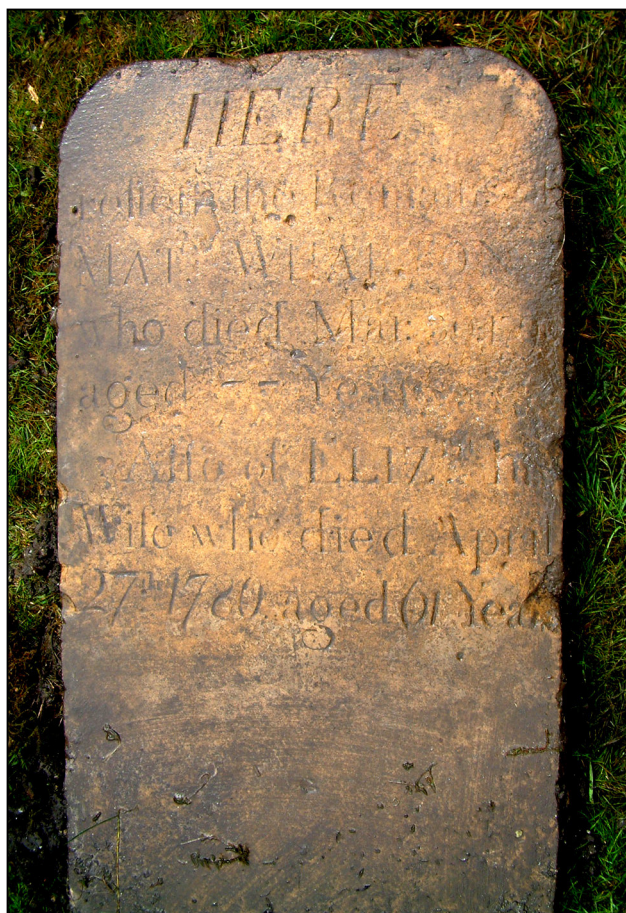 HERE
resteth the Remains of
MAT.ʷ
who died Mar:
aged 77 Years
Also of ELIZ.ʰ his
Wife who died April
27.ᵗʰ 1780. aged 61 Years